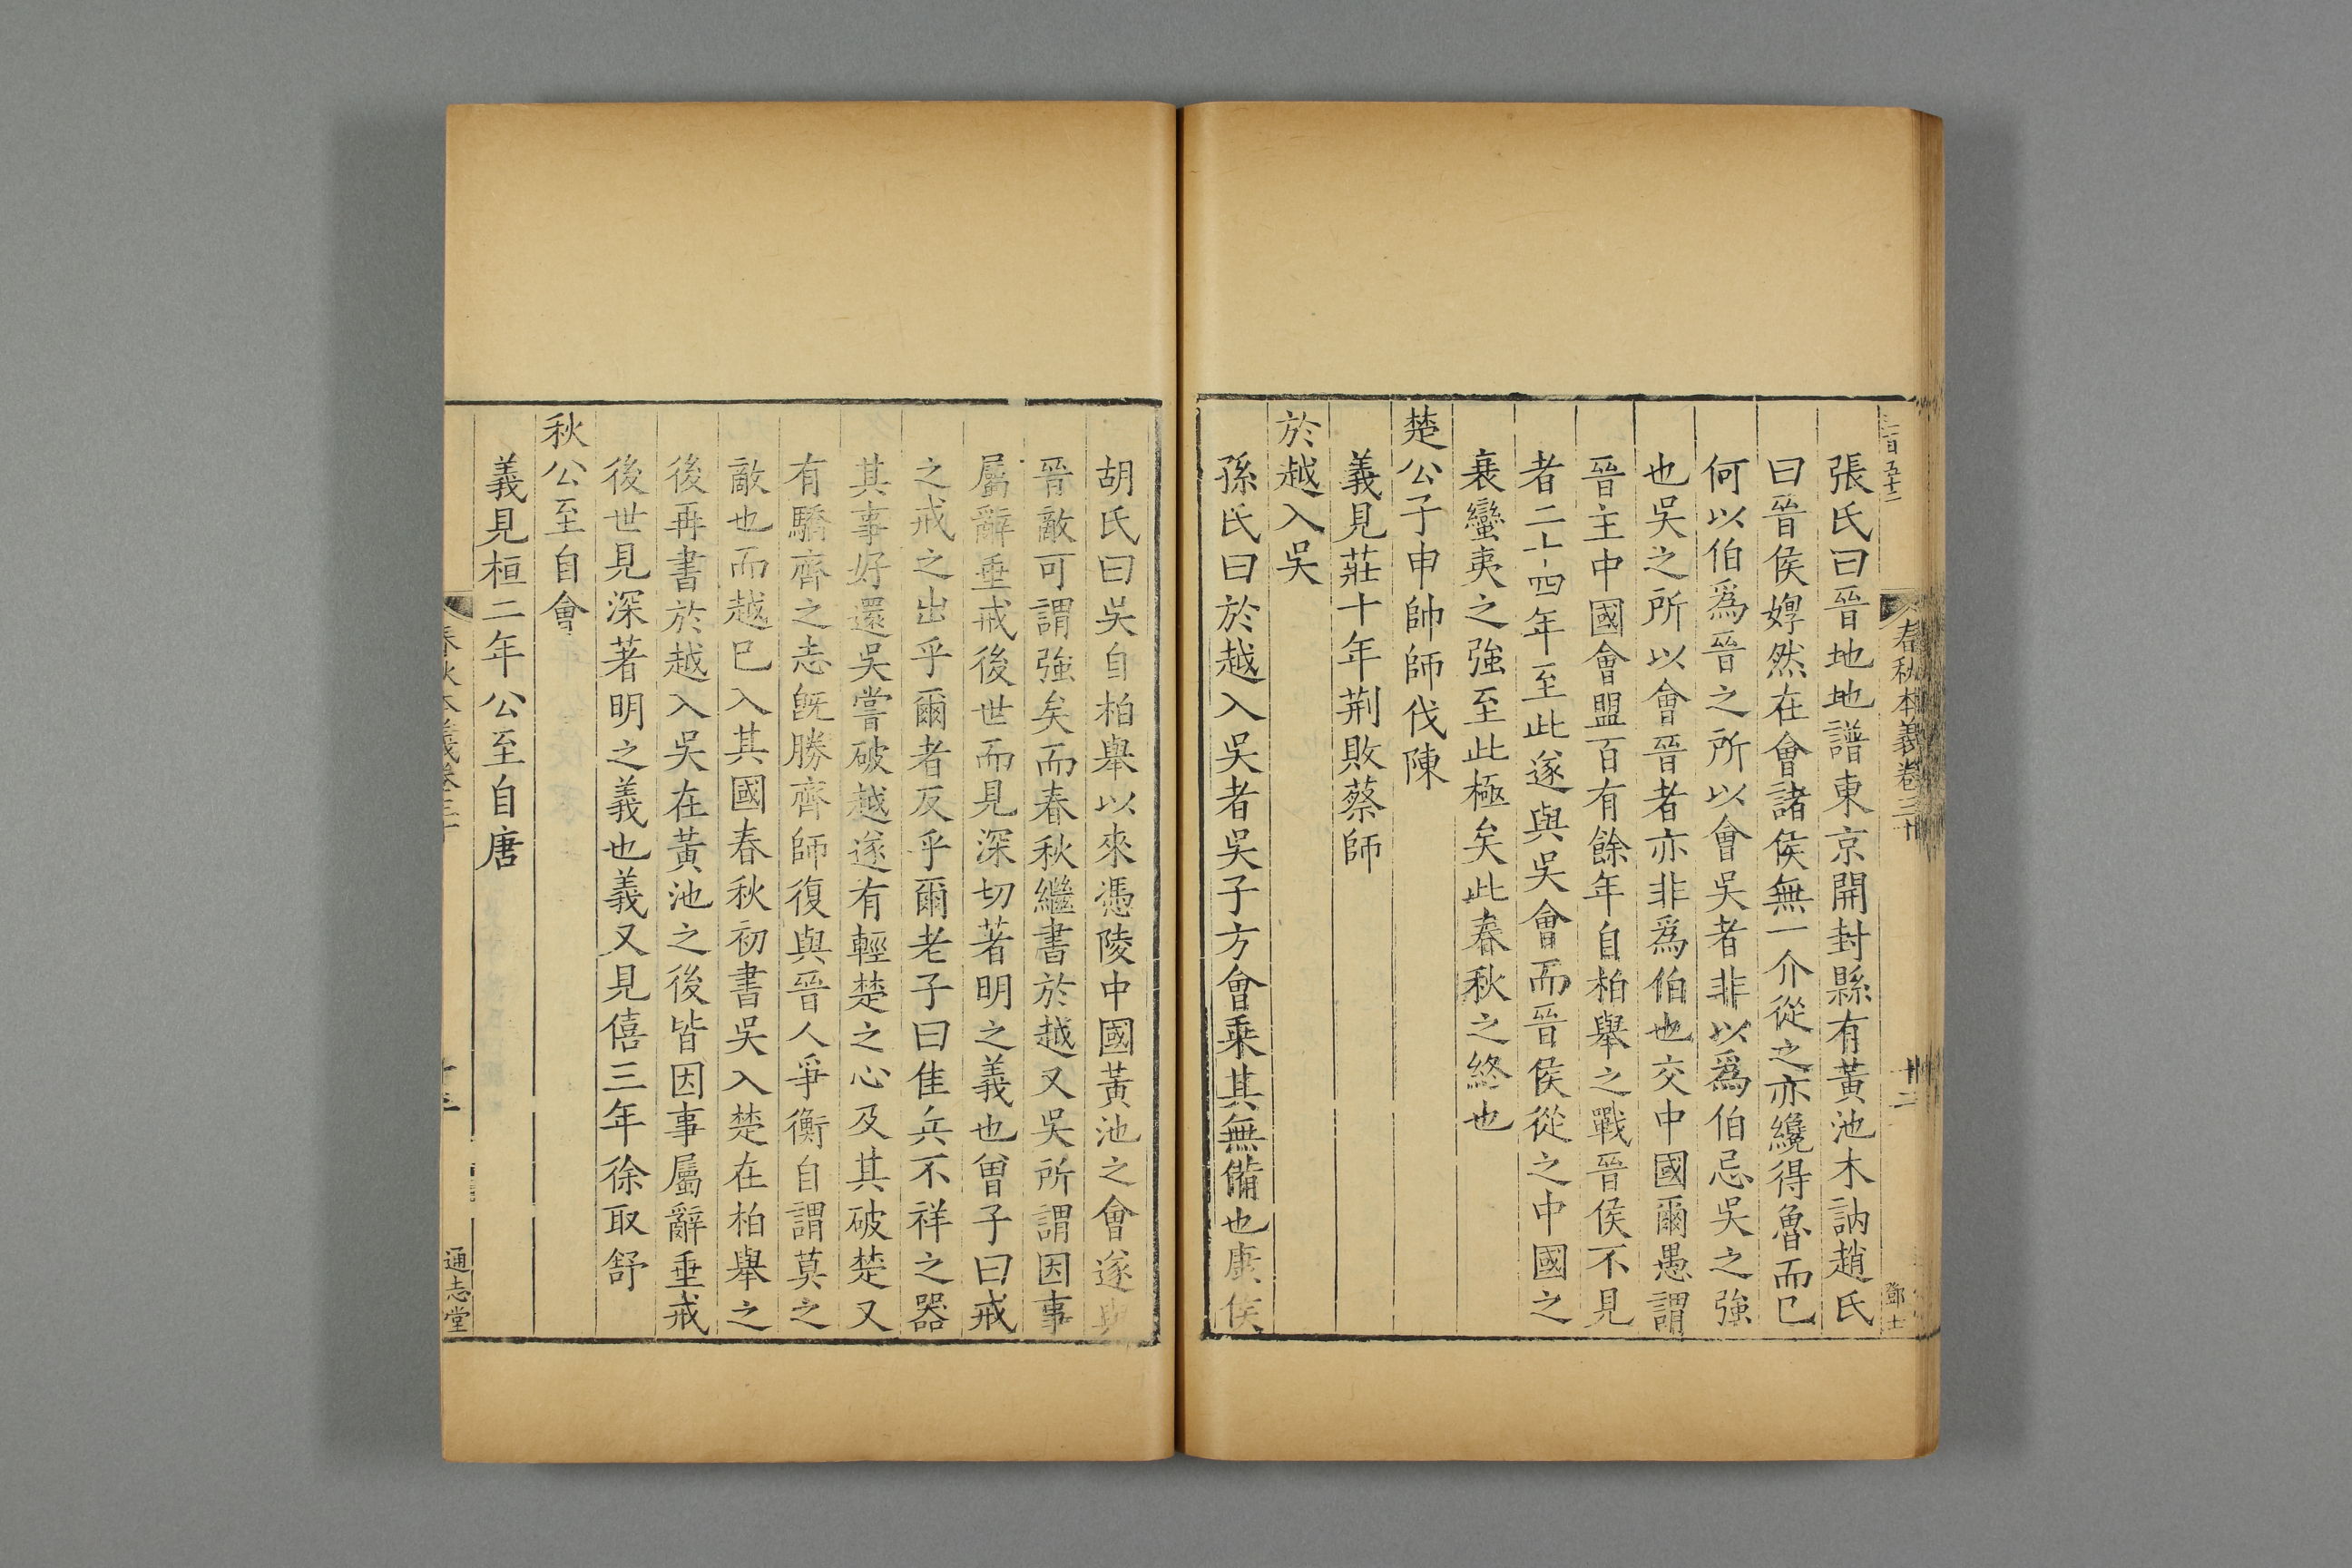 春秋本義卷三十
張氏曰晉地地譜東京開封縣有黃池木訥趙氏
曰晉侯婞然在會諸侯無一介從之亦纔得魯而已
何以伯爲晉之所以會吳者非以爲伯忌吳之強
也吳之所以會晉者亦非爲伯也交中國爾愚謂
晉主中國會盟百有餘年自柏舉之戰晉侯不見
者二十四年至此遂與吳會而晉侯從之中國之
衰蠻夷之強至此極矣此春秋之終也
楚公子申帥師伐陳
義見莊十年荆敗蔡師
於越入吳
孫氏曰於越入吳者吳子方會乘其無備也康侯
胡氏曰吳自柏舉以來憑陵中國黃池之會遂與
晉敵可謂強矣而春秋繼書於越又吳所謂因事
屬辭垂戒後世而見深切著明之義也曾子曰戒
之戒之出乎爾者反乎爾老子曰佳兵不祥之器
其事好還吳嘗破越遂有輕楚之心及其破楚又
有驕齊之志旣勝齊師復與晉人爭衡自謂莫之
敵也而越已入其國春秋初書吳入楚在柏舉之
後再書於越入吳在黃池之後皆因事屬辭垂戒
後世見深著明之義也義又見僖三年徐取舒
秋公至自會
義見桓二年公至自唐
春秋本義卷三十
通志堂